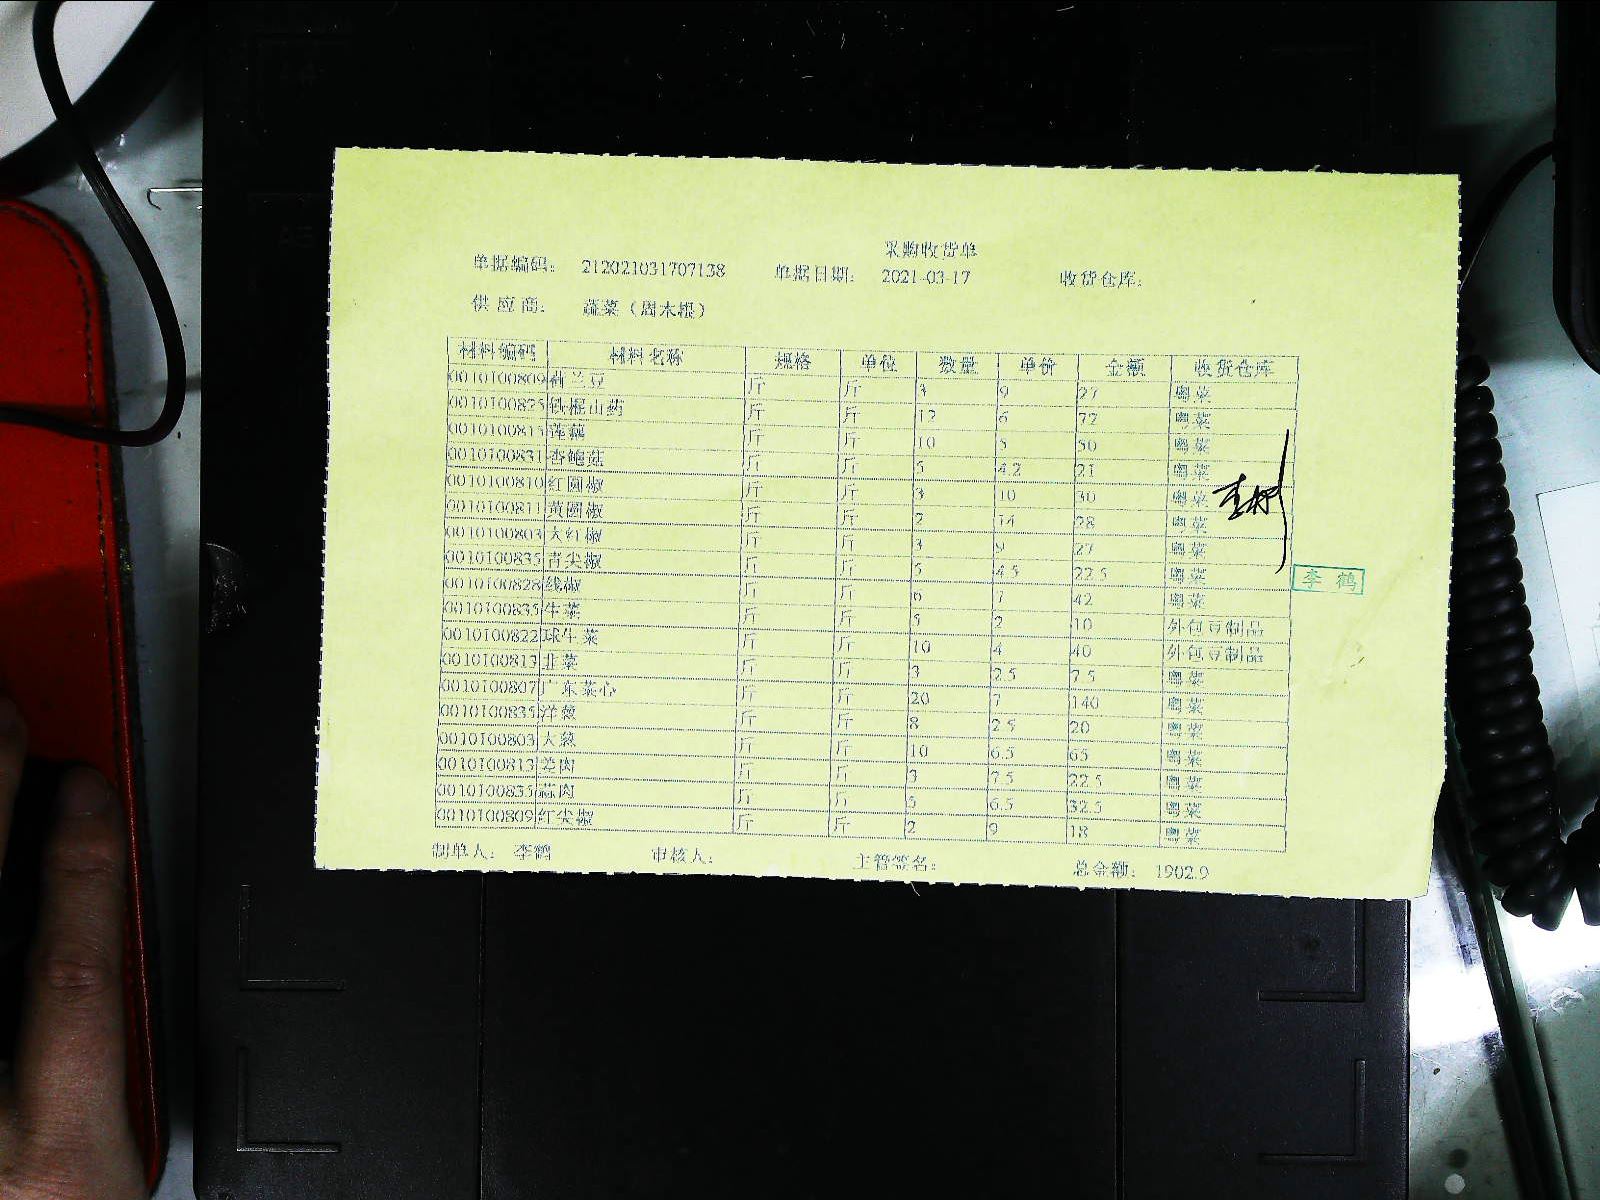 采购收货单
单据编码： 212021031707138 单据日期： 2021-03-17 收货仓库：
供应商： 蔬菜（周木根）
材料编码 材料名称 规格 单位 数量 单价 金额 收货仓库
0010100809 荷兰豆 斤 斤 3 9 27 粤菜
0010100825 铁棍山药 斤 斤 12 6 72 粤菜
0010100815 莲藕 斤 斤 10 5 50 粤菜
0010100831 杏鲍菇 斤 斤 5 4.2 21 粤菜
0010100810 红圆椒 斤 斤 3 10 30 粤菜
0010100811 黄圆椒 斤 斤 2 14 28 粤菜
0010100803 大红椒 斤 斤 3 9 27 粤菜
0010100835 青尖椒 斤 斤 5 4.5 22.5 粤菜
0010100828 线椒 斤 斤 6 7 42 粤菜
0010100835 生菜 斤 斤 5 2 10 外包豆制品
0010100822 球生菜 斤 斤 10 4 40 外包豆制品
0010100813 韭菜 斤 斤 3 2.5 7.5 粤菜
0010100807 广东菜心 斤 斤 20 7 140 粤菜
0010100835 洋葱 斤 斤 8 2.5 20 粤菜
0010100803 大葱 斤 斤 10 6.5 65 粤菜
0010100813 姜肉 斤 斤 3 7.5 22.5 粤菜
0010100835 蒜肉 斤 斤 5 6.5 32.5 粤菜
0010100809 红尖椒 斤 斤 2 9 18 粤菜
李鹤
制单人： 李鹤 审核人： 主管签名： 总金额： 1902.9